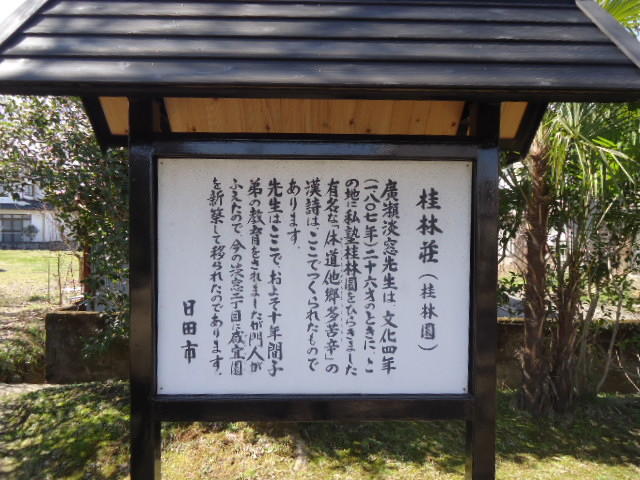 桂林荘（桂林園）
廣瀬淡窓先生は、文化四年
（一八〇七年）二十六才のときに、こ
の地に私塾桂林園をひらきました
有名な「休道他郷多苦辛」の
漢詩はここでつくられたもので
あります。
先生はここで、およそ十年間子
弟の教育をされましたが門人が
ふえたので、今の淡窓二丁目に咸宜園
を新築して移られたのであります。
日田市